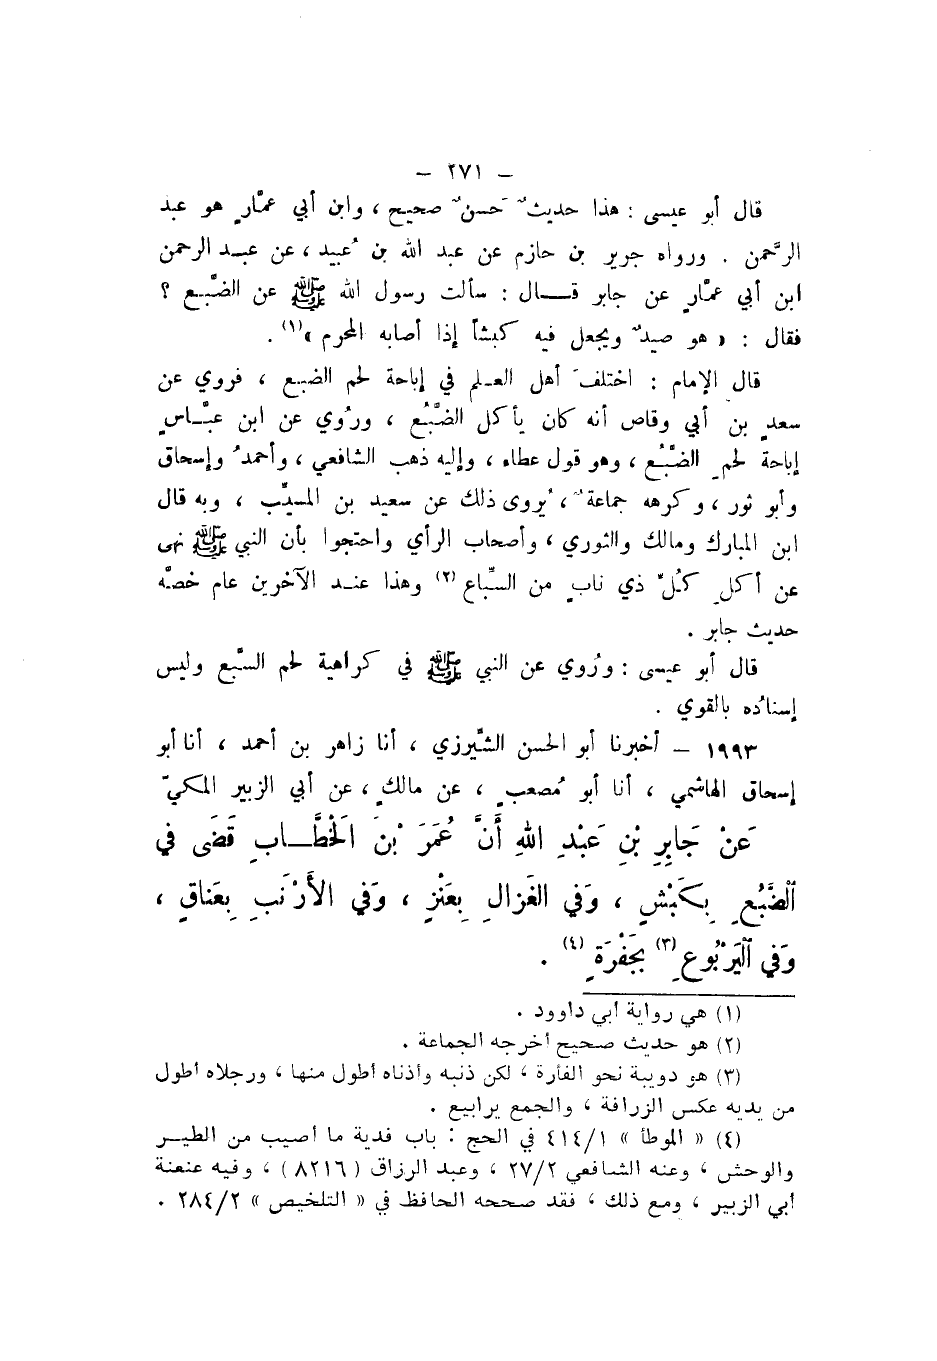 — ٢٧١ —
قال أبو عيسى : هذا حديثٌ حَسنٌ صحيح ، وابن أبي عمَّارٍ هو عبد
الرَّحمن . ورواه جرير بن حازم عن عبد الله بن عُبيد ، عن عبـد الرحمن
ابن أبي عمَّارٍ عن جابر قـــال : سألت رسول الله ﷺ عن الضَّبـع ؟
فقال : « هو صيدٌ ويجعل فيه كبشاً إذا أصابه المحرم »(١) .
قال الإمام : اختلفَ أهل العـلم في إباحة لحم الضبع ، فروي عن
سعدِ بن أبي وقاص أنه كان يأكل الضَّبُع ، ورُوي عن ابن عبَّـاسٍ
إباحةُ لحمِ الضَّبُع ، وهو قول عطاء ، وإليه ذهب الشافعي ، وأحمدُ وإسحاق
وأبو ثور ، وكرهه جماعةٌ ، يُروى ذلك عن سعيد بن المسيِّب ، وبه قال
ابن المبارك ومالك والثوري ، وأصحاب الرأي واحتجوا بأن النبي ﷺ نهى
عن أكلِ كلِّ ذي نابٍ من السِّباع (٢) وهذا عنـد الآخرين عام خصَّه
حديث جابر .
قال أبو عيسى : ورُوي عن النبي ﷺ في كراهية لحم السَّبع وليس
إسنادُه بالقوي .
١٩٩٣ — أخبرنا أبو الحسن الشِّيرزي ، أنا زاهر بن أحمد ، أنا أبو
إسحاق الهاشمي ، أنا أبو مُصعبٍ ، عن مالكٍ ، عن أبي الزبير المكيّ
عَنْ جَابِرِ بْنِ عَبْدِ اللهِ أَنَّ عُمَرَ بْنَ الَخْطَّـــابِ قَضَى في
الضَّبُعِ بِكَبْشٍ ، وَفي الغَزالِ بِعَنْزٍ ، وَفي الأَرْنَبِ بِعَناقٍ ،
وَفي اليَرْبُوعِ (٣) بِجَفْرَةٍ (٤) .
(١) هي رواية أبي داوود .
(٢) هو حديث صحيح أخرجه الجماعة .
(٣) هو دويبة نحو الفأرة ، لكن ذنبه وأذناه أطول منها ، ورجلاه أطول
من يديه عكس الزرافة ، والجمع يرابيع .
(٤) « الموطأ » ٤١٤/١ في الحج : باب فدية ما أصيب من الطيـر
والوحش ، وعنه الشافعي ٢٧/٢ ، وعبد الرزاق ( ٨٢١٦ ) ، وفيه عنعنة
أبي الزبير ، ومع ذلك ، فقد صححه الحافظ في « التلخيص » ٢٨٤/٢ .